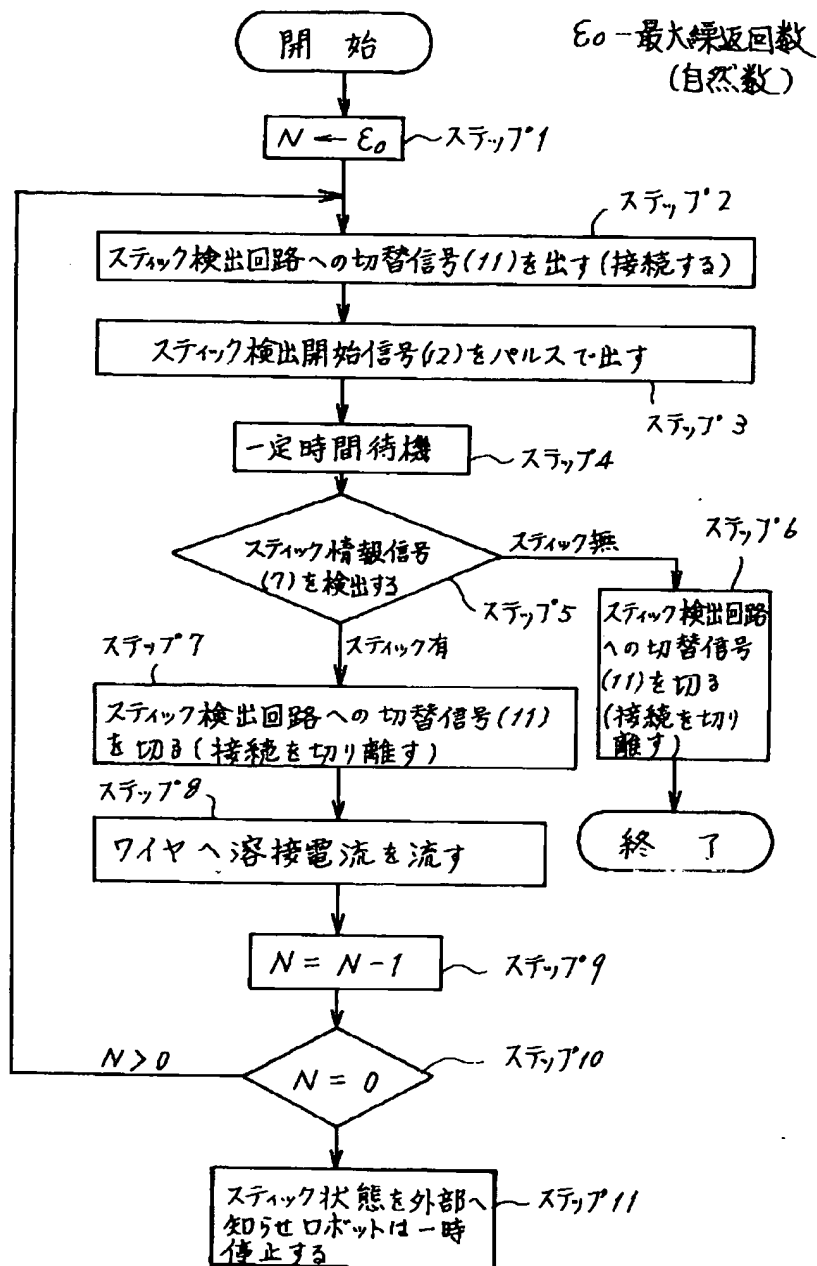 開 始
ε0-最大繰返回数
(自然数)
N ← ε0
ステップ1
ステップ2
スティック検出回路への切替信号(11)を出す(接続する)
スティック検出開始信号(12)をパルスで出す
ステップ3
一定時間待機
ステップ4
スティック情報信号
(7)を検出する
スティック無
ステップ5
ステップ6
スティック検出回路
への切替信号
(11)を切る
(接続を切り
離す)
スティック有
ステップ7
スティック検出回路への切替信号(11)
を切る(接続を切り離す)
ステップ8
ワイヤへ溶接電流を流す
終 了
N = N-1
ステップ9
N > 0
N = 0
ステップ10
スティック状態を外部へ
知らせロボットは一時
停止する
ステップ11